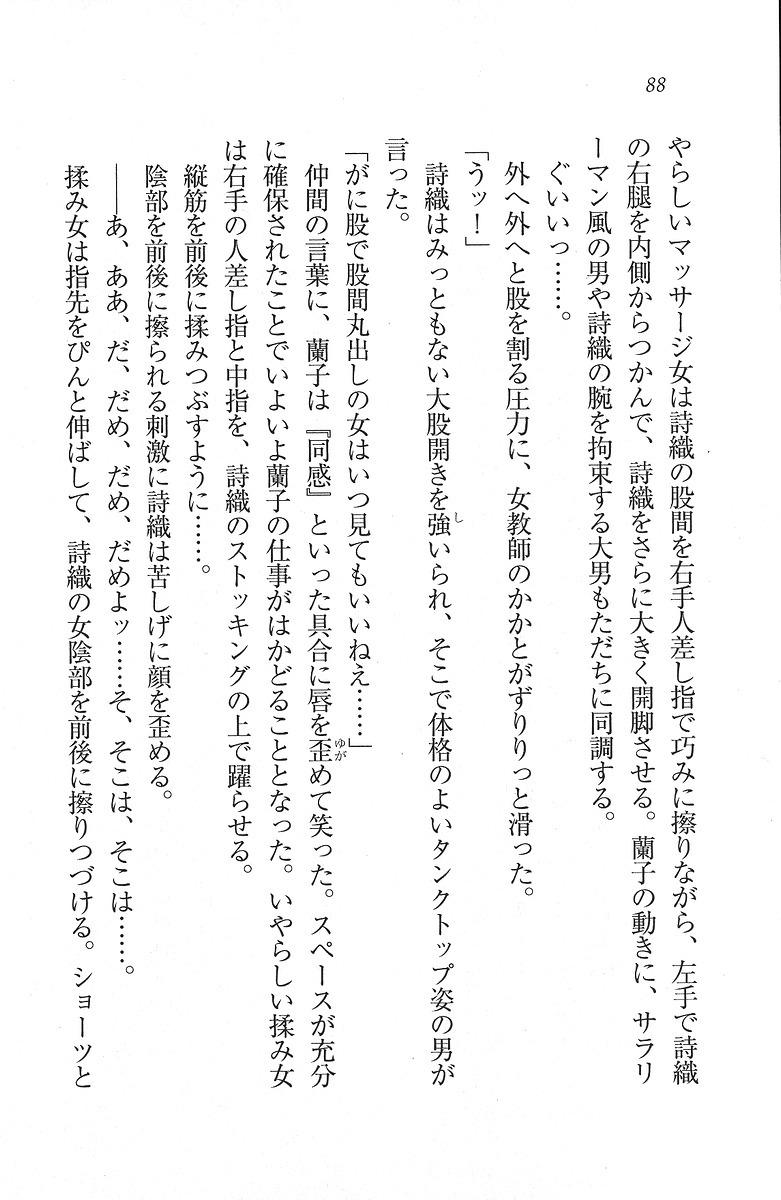 88
やらしいマッサージ女は詩織の股間を右手人差し指で巧みに擦りながら、左手で詩織
の右腿を内側からつかんで、詩織をさらに大きく開脚させる。蘭子の動きに、サラリ
ーマン風の男や詩織の腕を拘束する大男もただちに同調する。
ぐいいっ……。
外へ外へと股を割る圧力に、女教師のかかとがずりりっと滑った。
「うッ！」
詩織はみっともない大股開きを強いられ、そこで体格のよいタンクトップ姿の男が
し
言った。
「がに股で股間丸出しの女はいつ見てもいいねえ……」
仲間の言葉に、蘭子は『同感』といった具合に唇を歪めて笑った。スペースが充分
ゆが
に確保されたことでいよいよ蘭子の仕事がはかどることとなった。いやらしい揉み女
は右手の人差し指と中指を、詩織のストッキングの上で躍らせる。
縦筋を前後に揉みつぶすように……。
陰部を前後に擦られる刺激に詩織は苦しげに顔を歪める。
――あ、ああ、だ、だめ、だめ、だめよッ……そ、そこは、そこは……。
揉み女は指先をぴんと伸ばして、詩織の女陰部を前後に擦りつづける。ショーツと